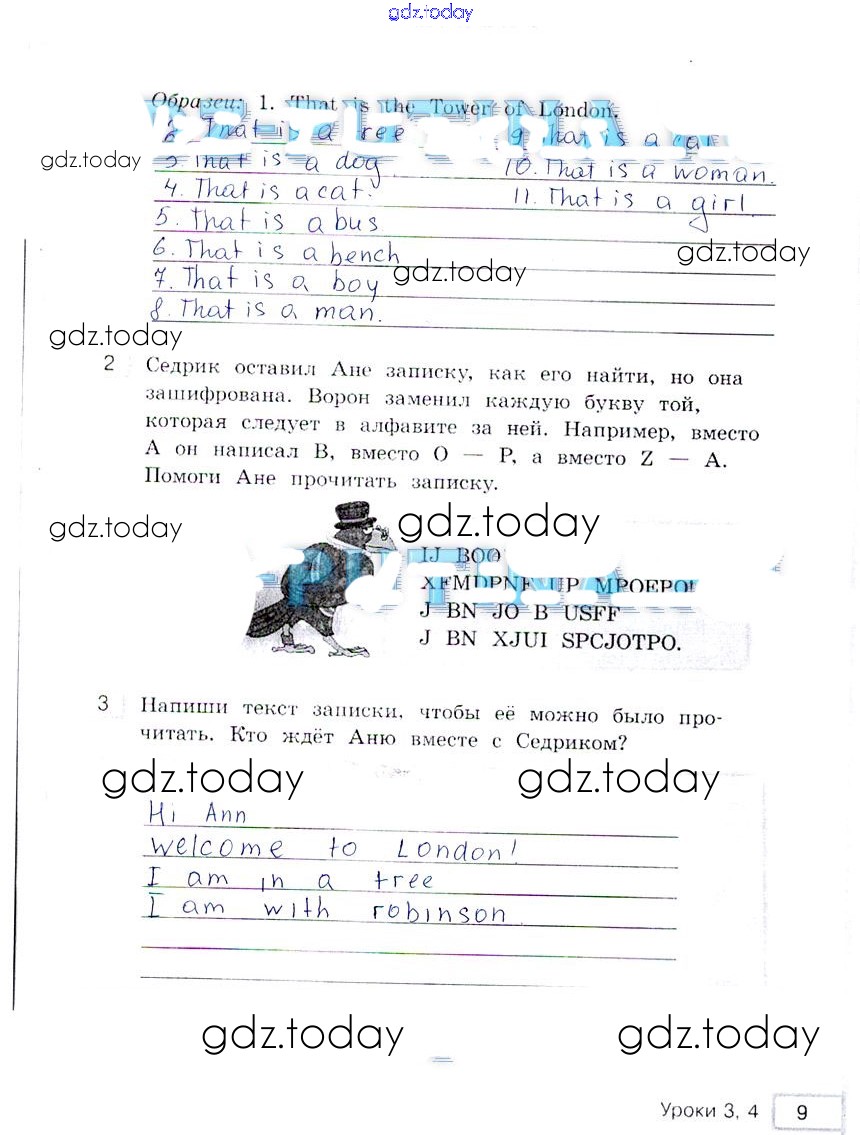 gdz.today
Образец: 1. That is the Tower of London.
2. That is a tree
9. That is a car
gdz.today
3. That is a dog
10. That is a woman.
4. That is a cat.
11. That is a girl
5. That is a bus
6. That is a bench
gdz.today
7. That is a boy
gdz.today
8. That is a man.
gdz.today
2 Седрик оставил Ане записку, как его найти, но она
зашифрована. Ворон заменил каждую букву той,
которая следует в алфавите за ней. Например, вместо
A он написал B, вместо O — P, а вместо Z — A.
Помоги Ане прочитать записку.
gdz.today
gdz.today
IJ BOO
XFMDPNF UP MPOEPO!
J BN JO B USFF
J BN XJUI SPCJOTPO.
3 Напиши текст записки, чтобы её можно было про-
читать. Кто ждёт Аню вместе с Седриком?
gdz.today
gdz.today
Hi Ann
Welcome to London!
I am in a tree
I am with robinson
gdz.today
gdz.today
Уроки 3, 4 9